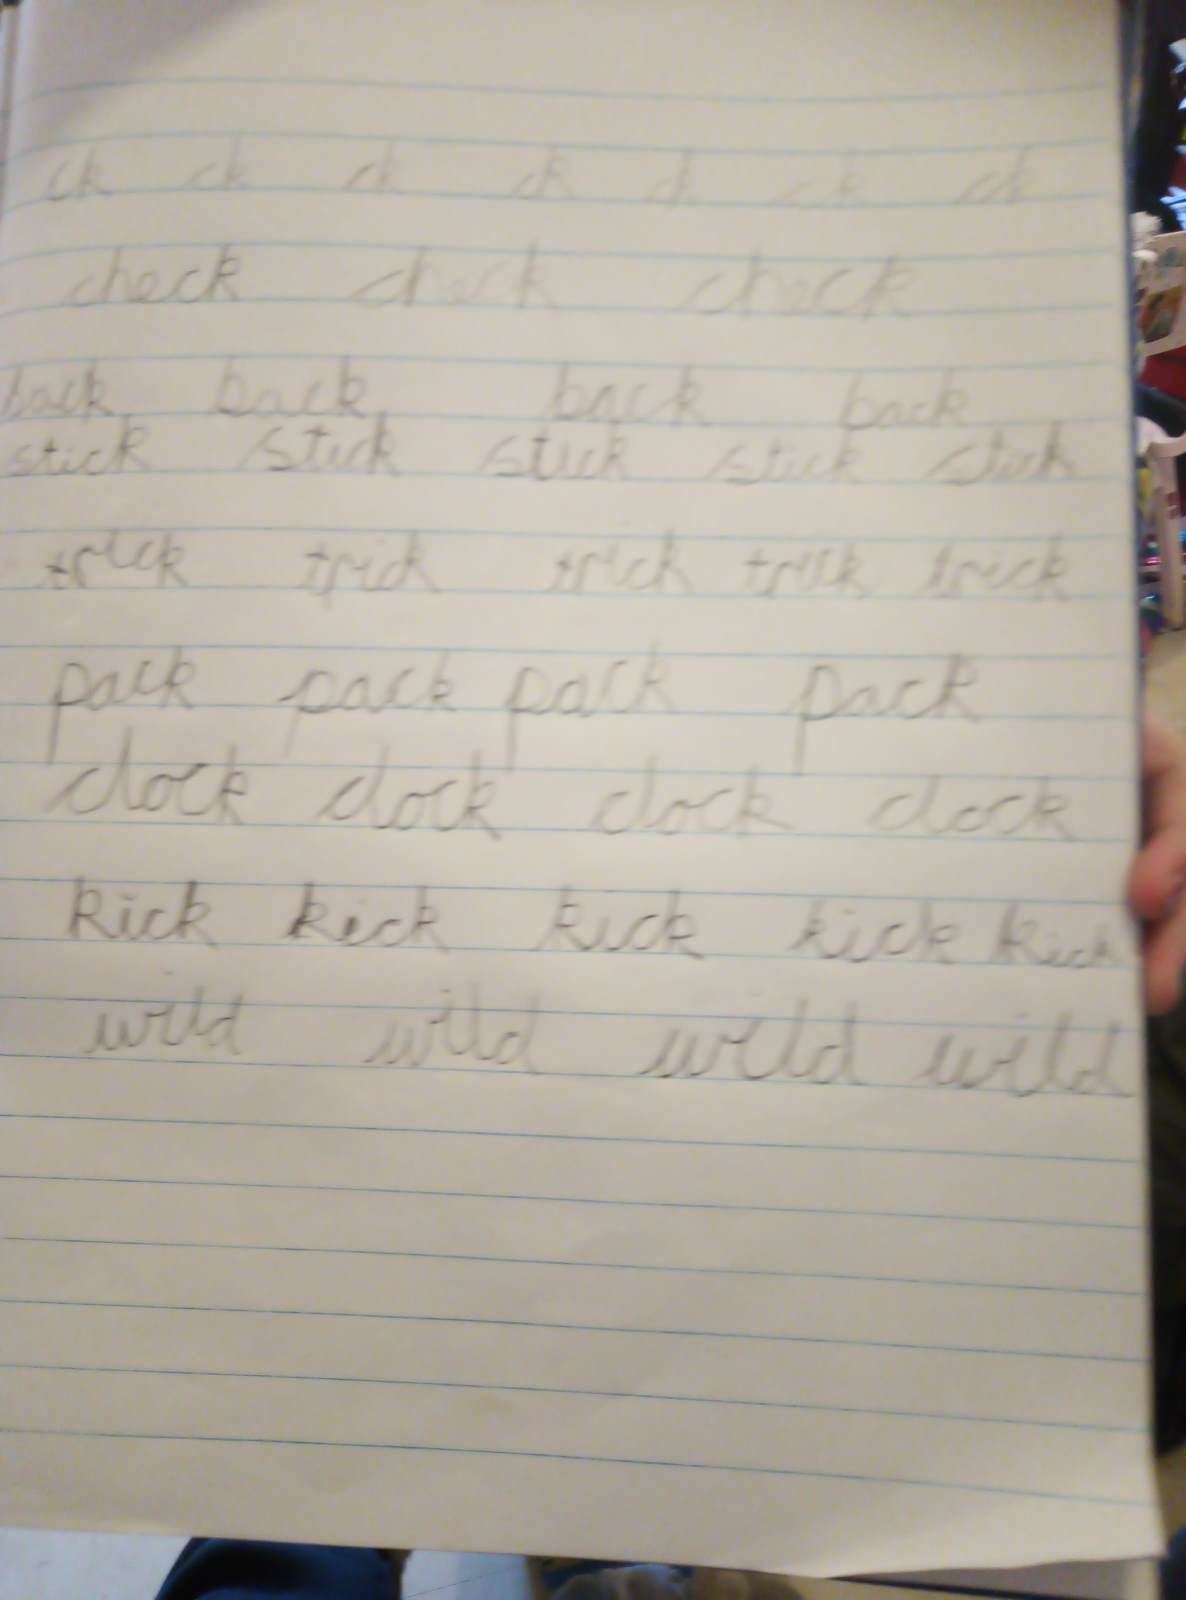 ck ck ck ck ck ck ck
check check check
back back back back
stick stick stick stick stick
trick trick trick trick trick
pack pack pack pack
clock clock clock clock
kick kick kick kick kick
wild wild wild wild